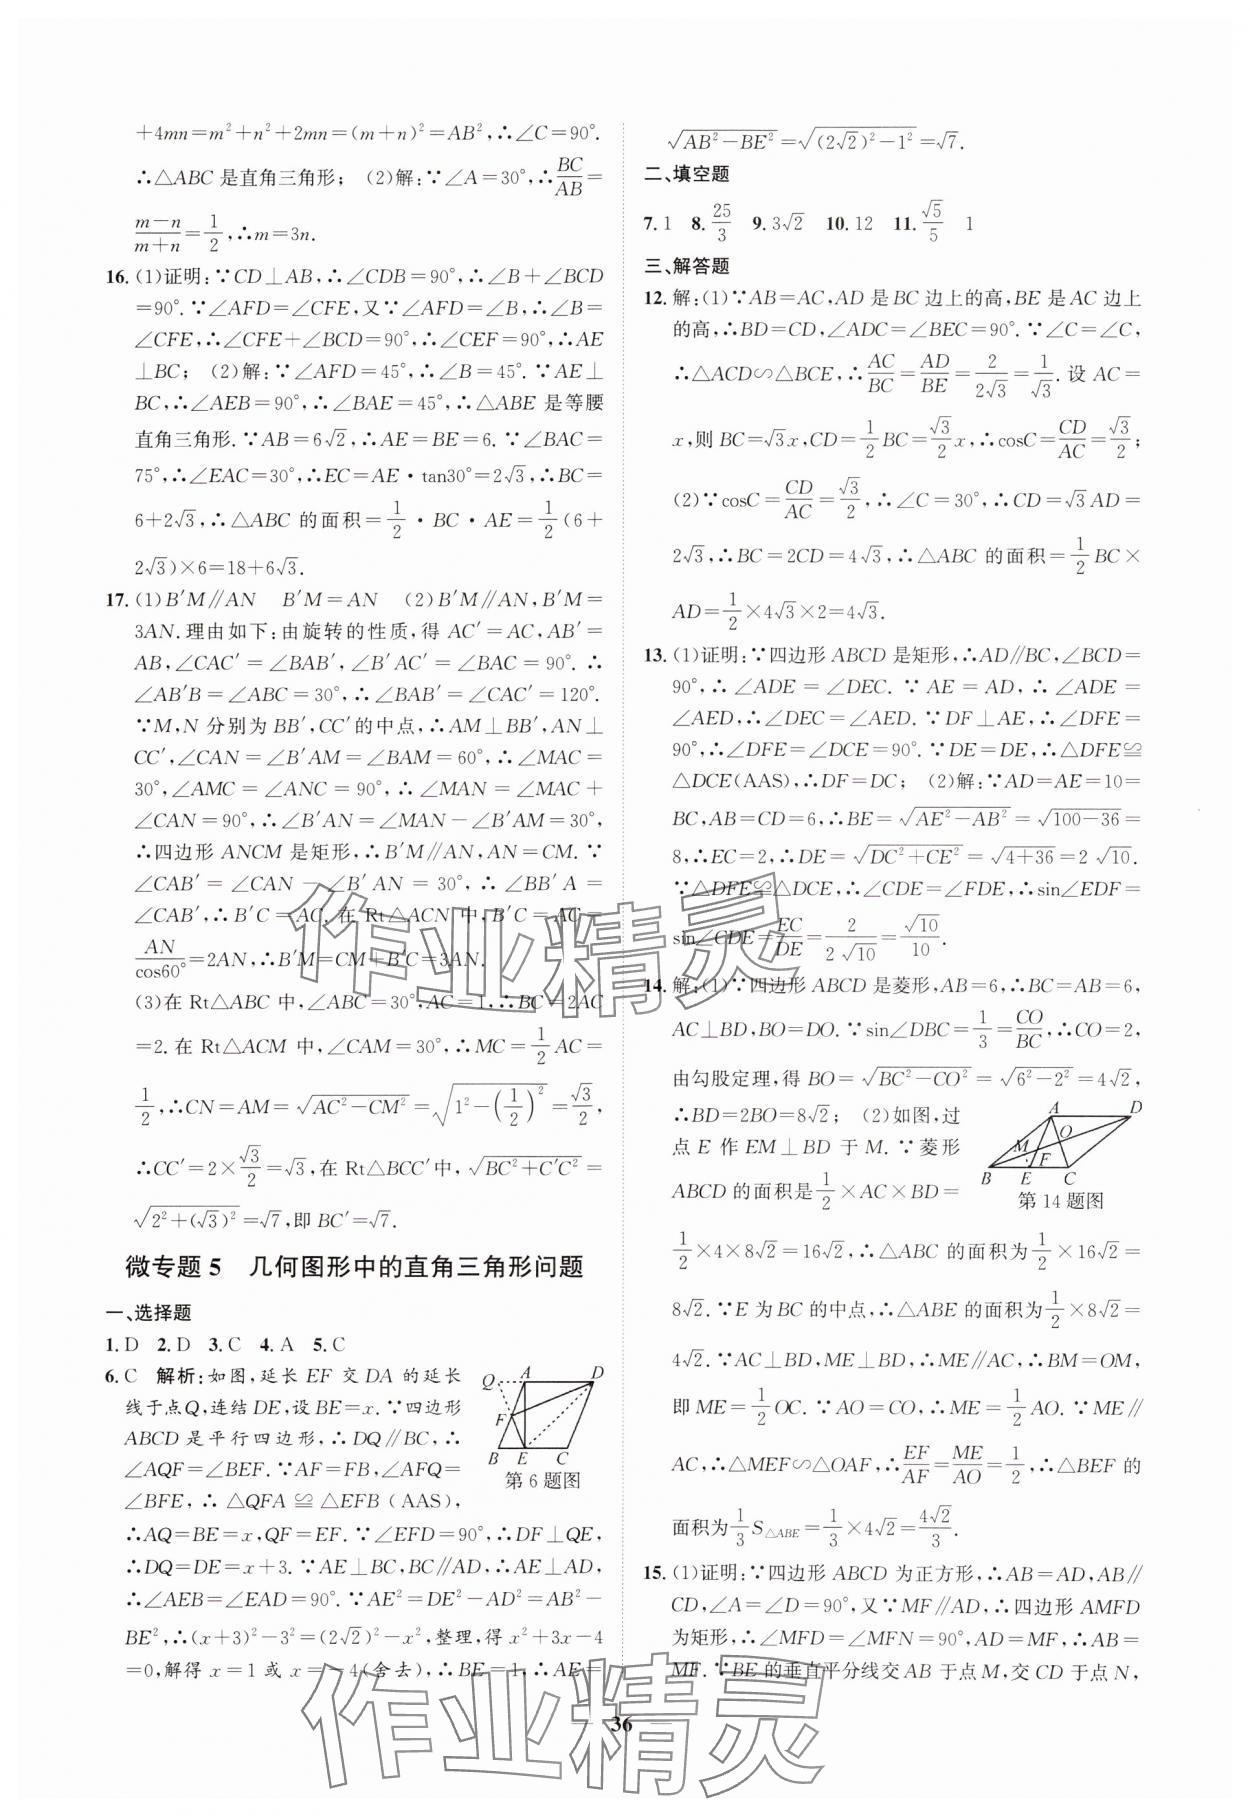 +4mn=m²+n²+2mn=(m+n)²=AB²,∴∠C=90°.
∴△ABC 是直角三角形; (2)解:∵∠A=30°,∴BC/AB=
(m-n)/(m+n)=1/2,∴m=3n.
16. (1)证明:∵CD⊥AB,∴∠CDB=90°,∴∠B+∠BCD
=90°.∵∠AFD=∠CFE,又∵∠AFD=∠B,∴∠B=
∠CFE,∴∠CFE+∠BCD=90°,∴∠CEF=90°,∴AE
⊥BC; (2)解:∵∠AFD=45°,∴∠B=45°.∵AE⊥
BC,∴∠AEB=90°,∴∠BAE=45°,∴△ABE 是等腰
直角三角形.∵AB=6√2,∴AE=BE=6.∵∠BAC=
75°,∴∠EAC=30°,∴EC=AE·tan30°=2√3,∴BC=
6+2√3,∴△ABC 的面积=1/2·BC·AE=1/2(6+
2√3)×6=18+6√3.
17. (1)B′M∥AN B′M=AN (2)B′M∥AN,B′M=
3AN.理由如下:由旋转的性质,得 AC′=AC,AB′=
AB,∠CAC′=∠BAB′,∠B′AC′=∠BAC=90°.∴
∠AB′B=∠ABC=30°,∴∠BAB′=∠CAC′=120°.
∵M,N 分别为 BB′,CC′的中点,∴AM⊥BB′,AN⊥
CC′,∠CAN=∠B′AM=∠BAM=60°,∴∠MAC=
30°,∠AMC=∠ANC=90°,∴∠MAN=∠MAC+
∠CAN=90°,∴∠B′AN=∠MAN-∠B′AM=30°,
∴四边形 ANCM 是矩形,∴B′M∥AN,AN=CM.∵
∠CAB′=∠CAN-∠B′AN=30°,∴∠BB′A=
∠CAB′,∴B′C=AC.在 Rt△ACN 中,B′C=AC=
AN/cos60°=2AN,∴B′M=CM+B′C=3AN.
(3)在 Rt△ABC 中,∠ABC=30°,AC=1,∴BC=2AC
=2.在 Rt△ACM 中,∠CAM=30°,∴MC=1/2AC=
1/2,∴CN=AM=√(AC²-CM²)=√(1²-(1/2)²)=√3/2,
∴CC′=2×√3/2=√3,在 Rt△BCC′中,√(BC²+C′C²)=
√(2²+(√3)²)=√7,即 BC′=√7.
微专题 5 几何图形中的直角三角形问题
一、选择题
1. D 2. D 3. C 4. A 5. C
6. C 解析:如图,延长 EF 交 DA 的延长
线于点Q,连结 DE,设 BE=x.∵四边形
ABCD 是平行四边形,∴DQ∥BC,∴
∠AQF=∠BEF.∵AF=FB,∠AFQ=
∠BFE,∴△QFA≌△EFB(AAS),
∴AQ=BE=x,QF=EF.∵∠EFD=90°,∴DF⊥QE,
∴DQ=DE=x+3.∵AE⊥BC,BC∥AD,∴AE⊥AD,
∴∠AEB=∠EAD=90°.∵AE²=DE²-AD²=AB²-
BE²,∴(x+3)²-3²=(2√2)²-x²,整理,得 x²+3x-4
=0,解得 x=1 或 x=-4(舍去),∴BE=1,∴AE=
Q A D
F
B E C
第 6 题图
√(AB²-BE²)=√((2√2)²-1²)=√7.
二、填空题
7. 1 8. 25/3 9. 3√2 10. 12 11. √5/5 1
三、解答题
12. 解:(1)∵AB=AC,AD 是 BC 边上的高,BE 是 AC 边上
的高,∴BD=CD,∠ADC=∠BEC=90°.∵∠C=∠C,
∴△ACD∽△BCE,∴AC/BC=AD/BE=2/(2√3)=1/√3.设 AC=
x,则 BC=√3x,CD=1/2BC=√3/2x,∴cosC=CD/AC=√3/2;
(2)∵cosC=CD/AC=√3/2,∴∠C=30°,∴CD=√3AD=
2√3,∴BC=2CD=4√3,∴△ABC 的面积=1/2BC×
AD=1/2×4√3×2=4√3.
13. (1)证明:∵四边形 ABCD 是矩形,∴AD∥BC,∠BCD=
90°,∴∠ADE=∠DEC.∵AE=AD,∴∠ADE=
∠AED,∴∠DEC=∠AED.∵DF⊥AE,∴∠DFE=
90°,∴∠DFE=∠DCE=90°.∵DE=DE,∴△DFE≌
△DCE(AAS),∴DF=DC; (2)解:∵AD=AE=10=
BC,AB=CD=6,∴BE=√(AE²-AB²)=√(100-36)=
8,∴EC=2,∴DE=√(DC²+CE²)=√(4+36)=2√10.
∵△DFE≌△DCE,∴∠CDE=∠FDE,∴sin∠EDF=
sin∠CDE=EC/DE=2/(2√10)=√10/10.
14. 解:(1)∵四边形 ABCD 是菱形,AB=6,∴BC=AB=6,
AC⊥BD,BO=DO.∵sin∠DBC=1/3=CO/BC,∴CO=2,
由勾股定理,得 BO=√(BC²-CO²)=√(6²-2²)=4√2,
∴BD=2BO=8√2; (2)如图,过
点 E 作 EM⊥BD 于 M.∵菱形
ABCD 的面积是1/2×AC×BD=
A D
O
M F
B E C
第 14 题图
1/2×4×8√2=16√2,∴△ABC 的面积为1/2×16√2=
8√2.∵E 为 BC 的中点,∴△ABE 的面积为1/2×8√2=
4√2.∵AC⊥BD,ME⊥BD,∴ME∥AC,∴BM=OM,
即 ME=1/2OC.∵AO=CO,∴ME=1/2AO.∵ME∥
AC,∴△MEF∽△OAF,∴EF/AF=ME/AO=1/2,∴△BEF 的
面积为1/3S△ABE=1/3×4√2=4√2/3.
15. (1)证明:∵四边形 ABCD 为正方形,∴AB=AD,AB∥
CD,∠A=∠D=90°,又∵MF∥AD,∴四边形 AMFD
为矩形,∴∠MFD=∠MFN=90°,AD=MF,∴AB=
MF.∵BE 的垂直平分线交 AB 于点 M,交 CD 于点 N,
36
作业精灵
作业精灵